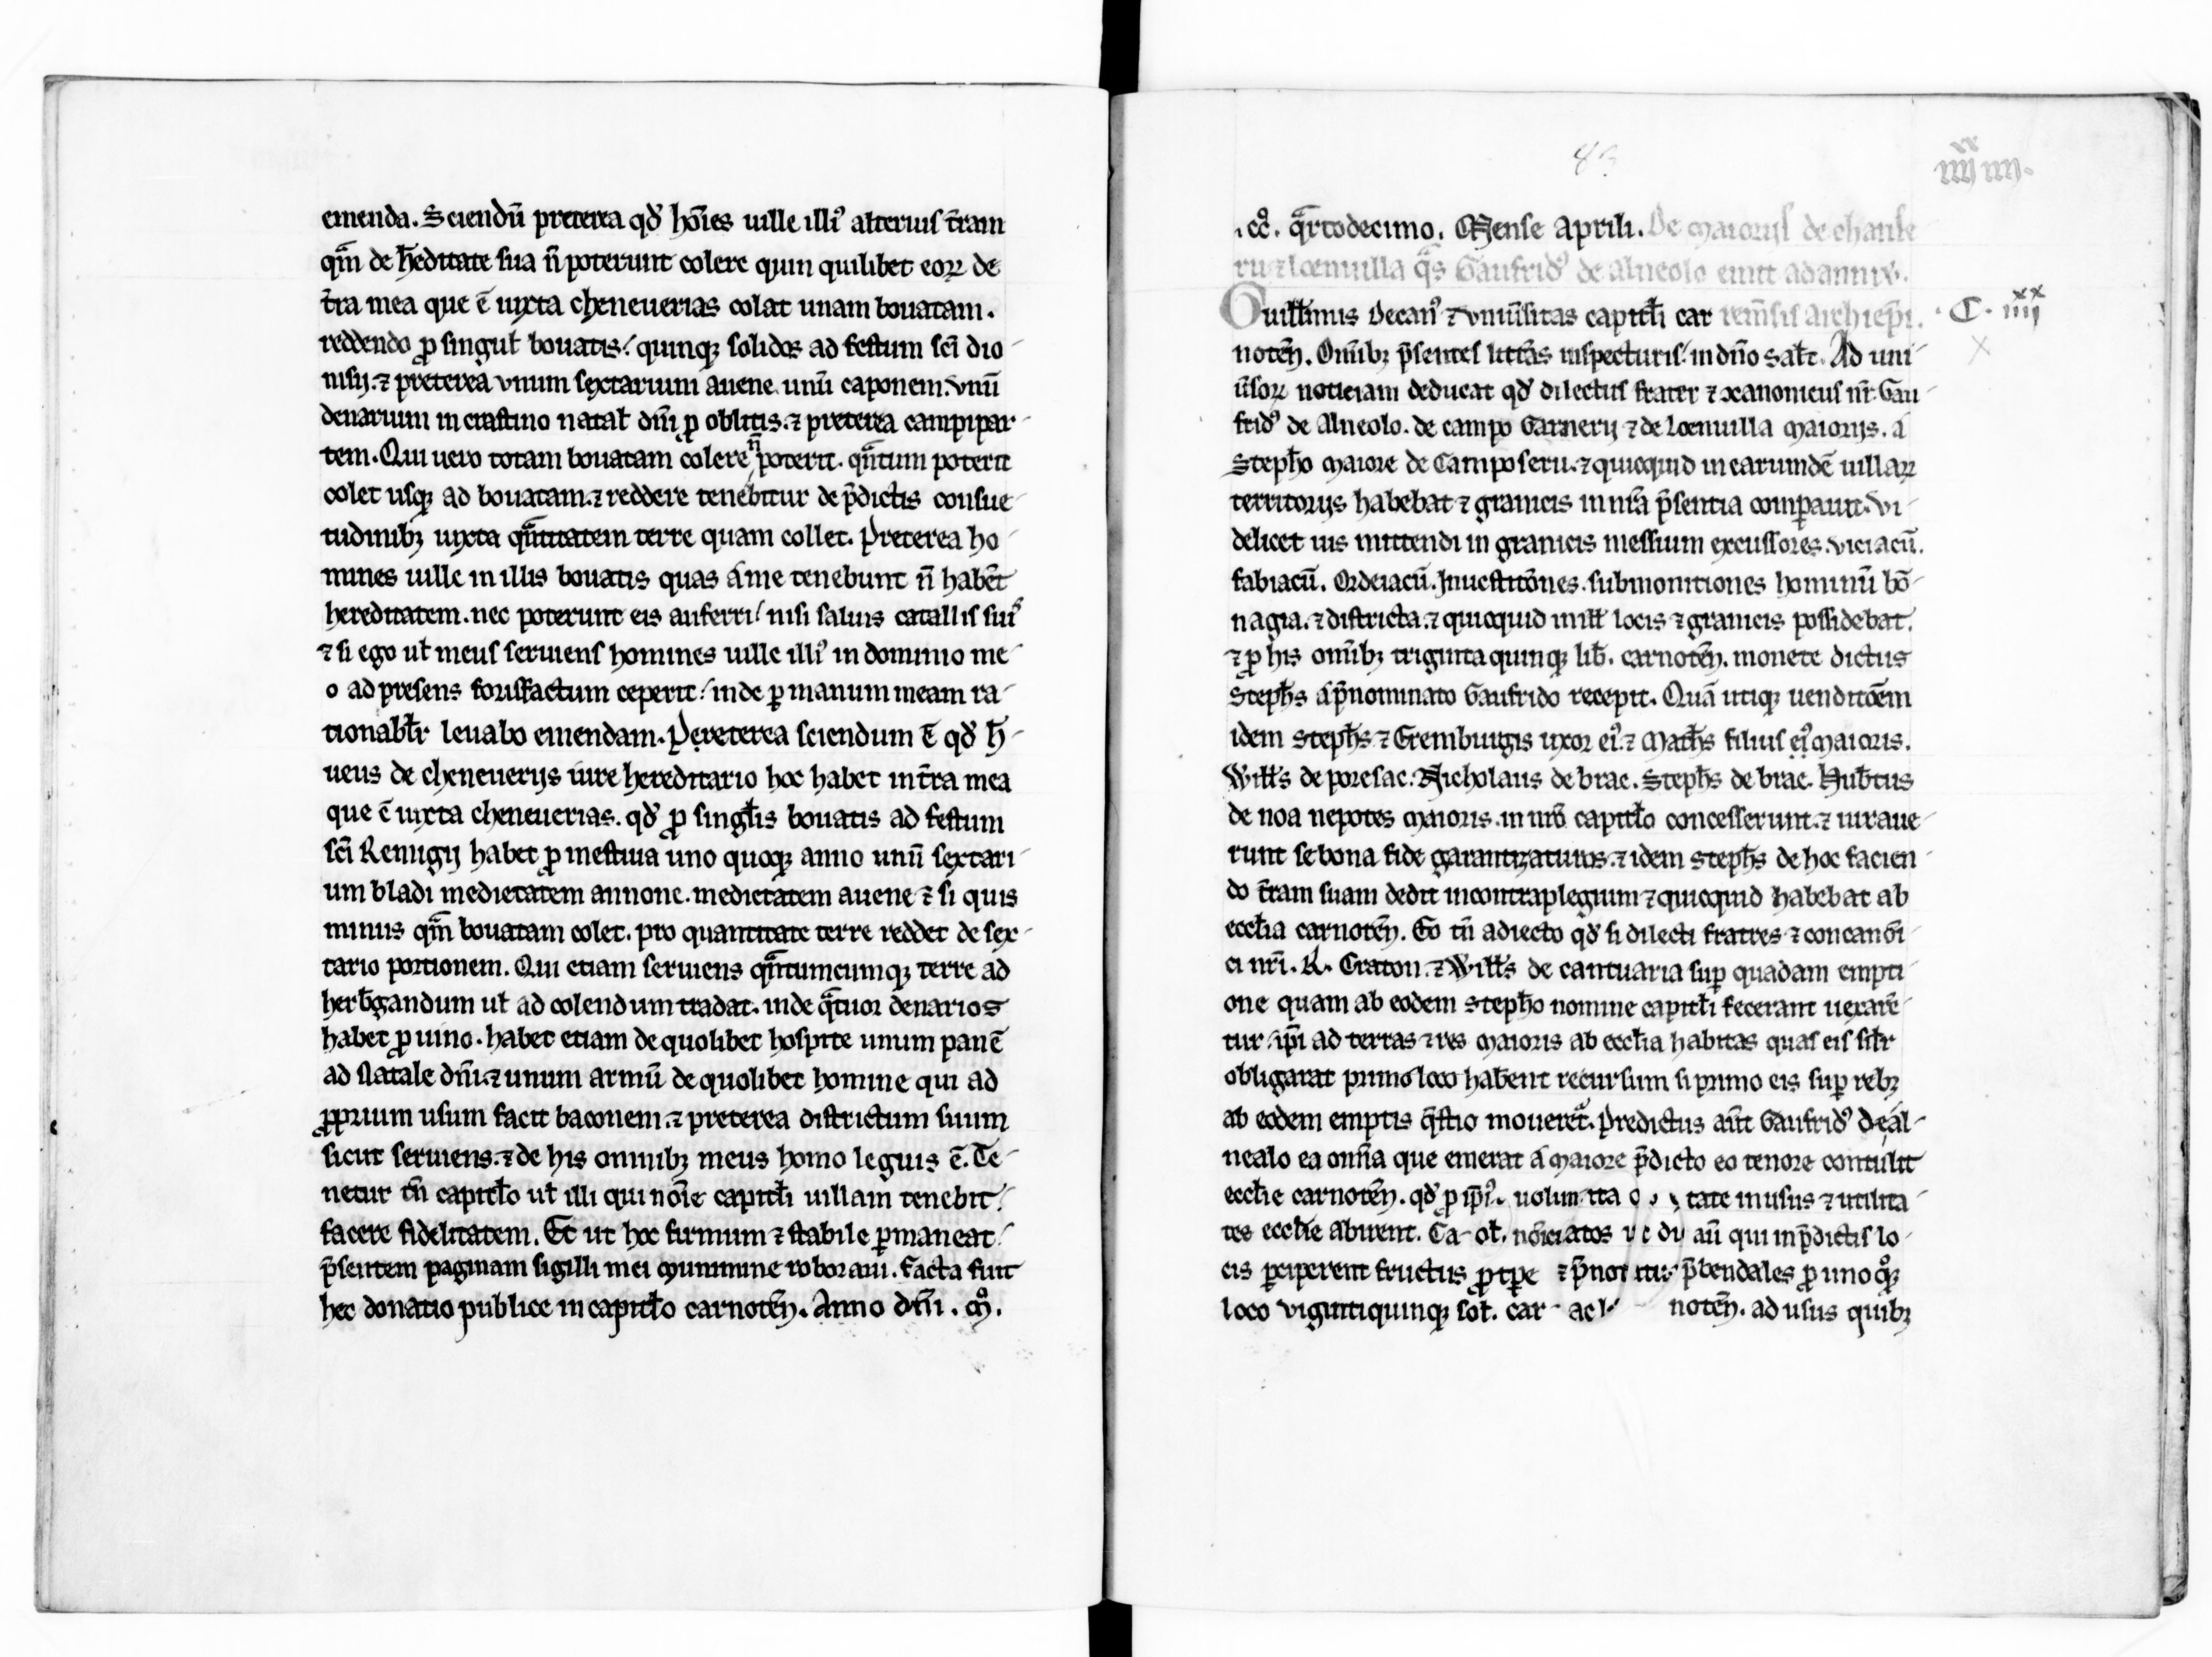 emenda. Sciendū preterea qđ hoīes uille illiꝰ alterius t̄ram
qᵃm de h̄editate sua n̄ poterunt colere quin quilibet eoꝝ de
t̄ra mea que ē iuxta cheneuerias colat unam bouatam.
reddendo ꝓ singuł bouatis: quinqꝫ solidos ad festum sc̄i dio-
nisij. ⁊ preterea vnum sextarium auene. unū caponem. vnū
denarium in crastino natał dn̄i ꝓ oblitis. ⁊ preterea campipar-
tem. Qui uero totam bouatam colere n̄ poterit. qᵃntum poterit
colet usqꝫ ad bouatam. ⁊ reddere tenebitur de p̄dictis consue-
tudinibꝫ iuxta qᵃntitatem terre quam collet. Preterea ho-
mines uille in illis bouatis quas a me tenebunt n̄ habēt
hereditatem. nec poterunt eis auferri: nisi saluis catallis suiꝰ
⁊ si ego uł meus seruiens homines uille illiꝰ in dominio me-
o ad presens forisfactum ceperit: inde ꝑ manum meam ra-
tionabłr leuabo emendam. Pereterea sciendum ē qđ h̄-
ueus de cheneuerijs iure hereditario hoc habet in t̄ra mea
que ē iuxta cheneuerias. qđ ꝓ singłis bouatis ad festum
sc̄i Remigij habet ꝓ mestiua uno quoqꝫ anno unū sextari-
um bladi medietatem annone. medietatem auene ⁊ si quis
minus qᵃm bouatam colet. pro quantitate terre reddet de sex-
tario portionem. Qui etiam seruiens qᵃntumcumqꝫ terre ad
herb̄gandum uł ad colendum tradat. inde qᵃtuor denarios
habet ꝓ uino. habet etiam de quolibet hospite unum panē
ad Natale dn̄i. ⁊ unum armū de quolibet homine qui ad
ꝓprium usum facit baconem. ⁊ preterea districtum suum
sicut seruiens. ⁊ de his omnibꝫ meus homo leguis ē. Te-
netur tn̄ capitło uł illi qui noīe capitłi uillam tenebit:
facere fidelitatem. Et ut hoc firmum ⁊ stabile ꝑmaneat:
p̄sentem paginam sigilli mei munimine roboraui. Facta fuit
hec donatio publice in capitło carnoteñ. Anno dn̄i. mͦ.
83
iiijˣˣ iiij.
.ccͦ. qᵃrtodecimo. Mense Aprili. De maiorijs de chanse
ru ⁊ loenuilla qᵃs Gaufridꝰ de Alneolo emit ad anniv.
Guiłłmus decanꝰ ⁊ vniūsitas capitłi car remēsis archiep̄i.
. C. iiijˣˣ
noteñ. Omībꝫ p̄sentes litt̄as inspecturis: in dn̄o sałt. Ad uni-
ūsoꝝ noticiam deducat qđ dilectus frater ⁊ ↄcanonicus nr̄. Gau-
fridꝰ de Alneolo. de campo Garnerij ⁊ de loenuilla maiorijs. a
Stepħo maiore de Campo seru. ⁊ quicquid in earumdē uillaꝝ
territorijs habebat ⁊ granicis in nr̄a p̄sentia comparuit. vi-
delicet ius mittendi in granicis messium excussores. viciacū.
fabiacū. Ordeiacū. Inuestitōnes. submonitiones hominū bō-
nagia. ⁊ districta. ⁊ quicquid in iłł locis ⁊ granicis possidebat.
⁊ ꝓ his omībꝫ triginta quinqꝫ liƀ. carnoteñ. monete dictus
Stepħs a p̄nominato Gaufrido recepit. Quā utiqꝫ uenditōem
idem Stepħs ⁊ Eremburgis uxor eiꝰ. ⁊ Matħs filius eiꝰ maioris.
Wiłłs de poresac. Nicholaus de brae. Stepħs de brae. Hub̄tus
de noa nepotes maioris. in nr̄o capitło concesserunt. ⁊ iuraue-
runt se bona fide garantizaturos. ⁊ idem Stepħs de hoc facien-
do t̄ram suam dedit in contraplegium ⁊ quicquid habebat ab
eccłia carnoteñ. Eo tn̄ adiecto qđ si dilecti fratres ⁊ concanōi-
ci nr̄i. R. Craton. ⁊ Wiłłs de cantuaria suꝑ quadam empti-
one quam ab eodem Stepħo nomine capitłi fecerant uexarē-
tur: ip̄i ad terras ⁊ res maioris ab eccłia habitas quas eis siłr
obligarat primo loco hab̄ent recursum si primo eis suꝑ rebꝫ
ab eodem emptis q̄stio mouereť. Predictus aūt Gaufridꝰ de al-
nealo ea omīa que emerat a maiore p̄dicto eo tenore contulit
eccłie carnoteñ. qđ ꝓ ip̄iꝰ uolun tate in usus ⁊ utilita-
tes eccłie abirent. aū qui in p̄dictis lo-
cis ꝑciperent fructus ꝓ tp̄e p̄bendales ꝓ uno qᵒqꝫ
loco vigintiquinqꝫ soł. car noteñ. ad usus quibꝫ